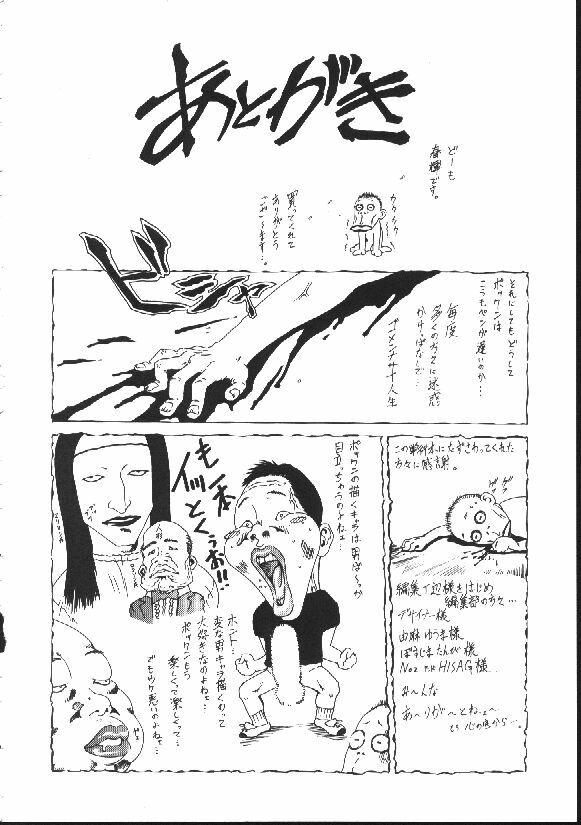 あとがき
どーも
春輝です。
ガクガク
買ってくれて
ありがとう
ございます…。
ドシャ
それにしてもどうして
ボックンは
こうもペンが遅いのか…
毎度
多くの方々に迷惑
かけっぱなしで…
ゴメンナサイ人生
この単行本にたずさわってくれた
方々に感謝。
編集T辺様をはじめ
編集部の方々…
デザイナー様
由麻ゆうま様
ぼうじまたんが様
HISAG様…
み〜んな
あ〜りが〜とねェ〜
心の底から…。
ボックンの描くキャラは男ばっか
目立っちゃうのよねェ…
も一本
イッとくぅお!!
ホント…
変な男キャラ描くのって
大好きなのよねェ…
ボックンもう
楽しくって楽しくって…
でもウケ悪いのよねェ…